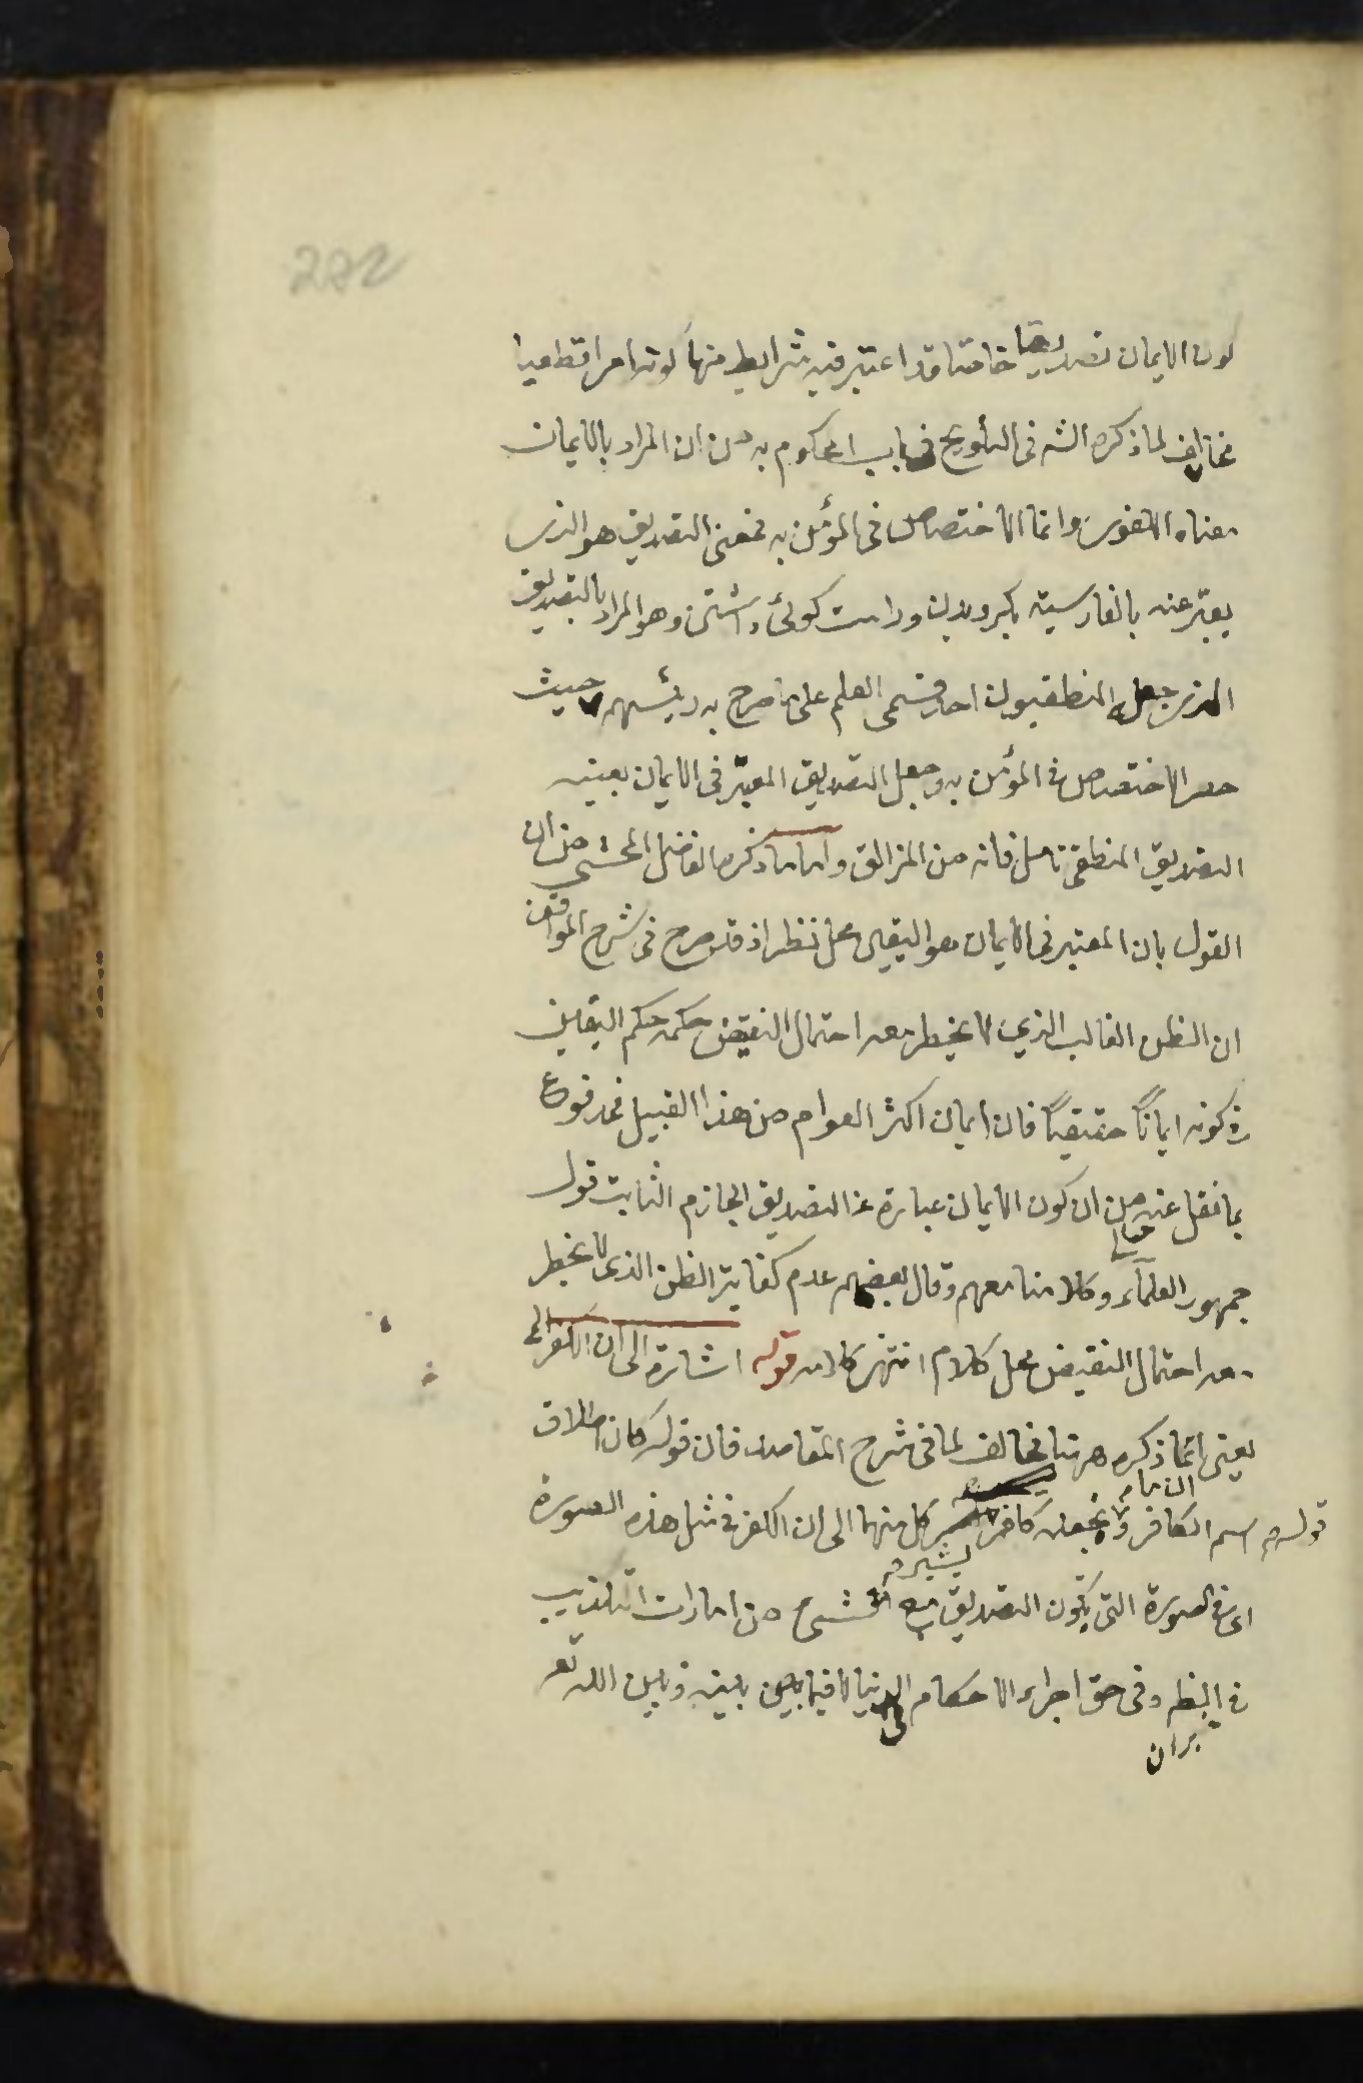 282
كون الايمان تصديقا خاصا قد اعتبر فيه شرايط منها كونه امرا قطعيا
مخالف لما ذكره الشه فى التلويح فى باب المحكوم به من ان المراد بالايمان
معناه اللغوى وانما الاختصاص فى المؤمن به فمعنى التصديق هو الذى
يعبّر عنه بالفارسية بكرويدن وراست كوئ داشتن وهو المراد بالتصديق
الذى جعله المنطقيون احد قسمى العلم على ما صرح به رئيسهم حيث
حصر الاختصاص فى المؤمن به وجعل التصديق المعتبر فى الايمان بعينه
التصديق المنطقى تامل فانه من المزالق واما ما ذكره الفاضل المحشى من ان
القول بان المعتبر فى الايمان هو اليقين محل نظر اذ قد صرح فى شرح المواقف
ان الظن الغالب الذى لا يخطر معه احتمال النقيض حكمه حكم اليقين
فى كونه ايمانًا حقيقيًا فان ايمان اكثر العوام من هذا القبيل فمدفوع
بما نقل عنه من ان كون الايمان عبارة عن التصديق الجازم الثابت قول
جمهور العلماء وكلامنا معهم وقال بعضهم عدم كفاية الظن الذى لا يخطر
معه احتمال النقيض محل كلام انتهى كلامه قوله اشارة الى ان الكفر الخ
يعنى انما ذكره ههنا مخالف لما فى شرح المقاصد فان قوله كان اطلاق
اسم الكافر و نجعله كافرا يشير كل منهما الى ان الكفر فى مثل هذه الصورة
اى فى الصورة التى يكون التصديق مع شئ من امارات التكذيب
فى الظ وفى حق اجراء الاحكام الدنيا لا فيما بينه وبين الله تع